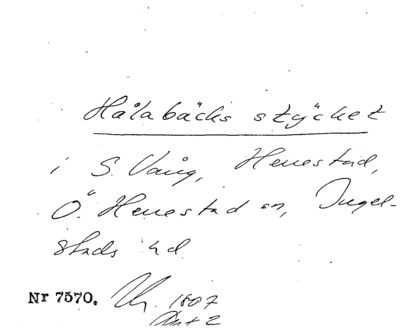 Hålabäcks stycket
i S. Vång, Herrestad,
Ö. Herrestad sn, Ingel-
stads hd
Nr 7570. 1807